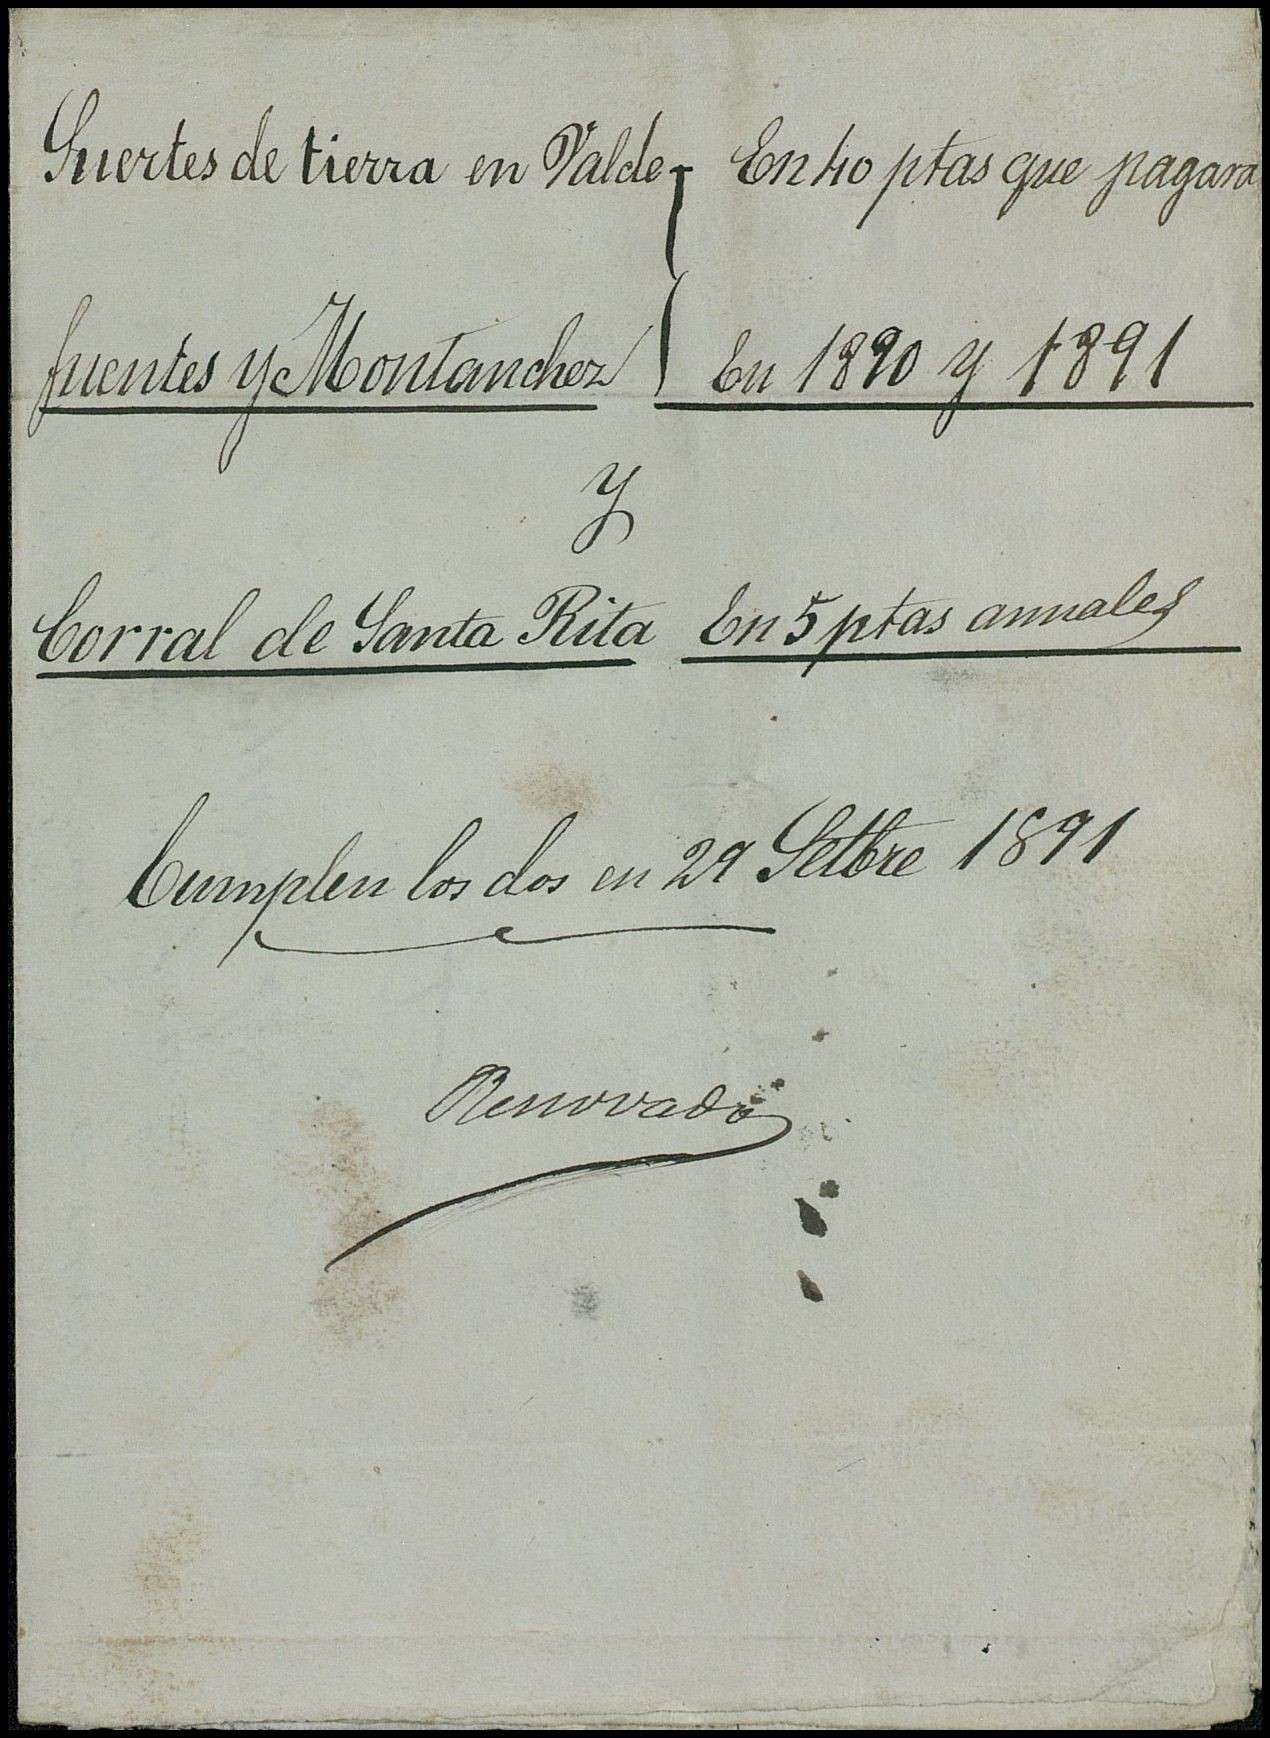 Suertes de tierra en Valde- En 40 ptas que pagara
fuentes y Montanchez En 1890 y 1891
y
Corral de Santa Rita En 5 ptas annuales
Cumplen los dos en 29 Setbre 1891
Renovado